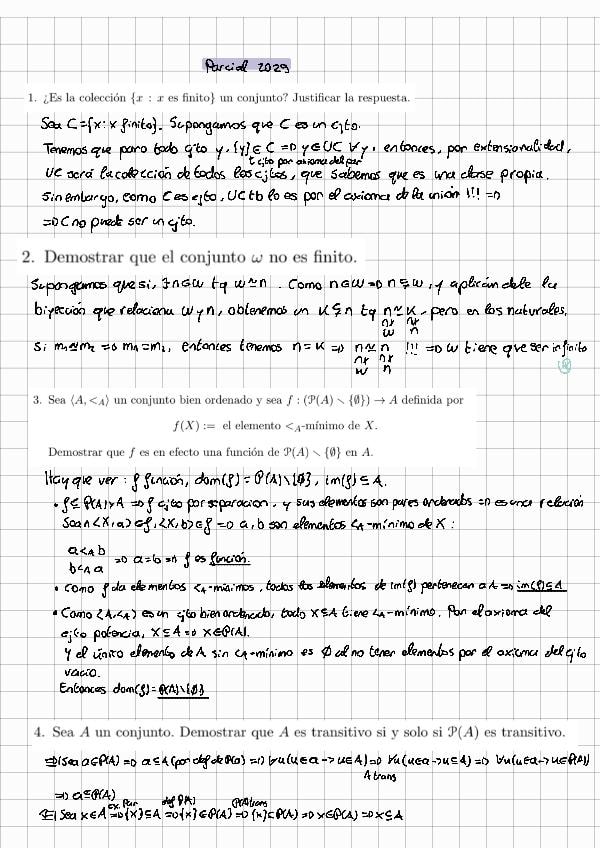 Parcial 2029
1. ¿Es la colección {x : x es finito} un conjunto? Justificar la respuesta.
Sea C={x: x finito}. Supongamos que C es un cjto.
Tenemos que para todo cjto y, {y}∈C ⇒ y∈UC ∀y, entonces, por extensionalidad,
↑ cjto por axioma del par
UC será la colección de todos los cjtos, que sabemos que es una clase propia.
Sin embargo, como C es cjto, UC tb lo es por el axioma de la unión !!! ⇒
⇒ C no puede ser un cjto.
2. Demostrar que el conjunto ω no es finito.
Supongamos que sí, ∃n∈ω tq ω≃n. Como n∈ω ⇒ n⊊ω, y aplicándole la
biyección que relaciona ω y n, obtenemos un K⊊n tq n≃K, pero en los naturales,
≀≀ ≀≀
ω n
Si m₁≃m₂ ⇒ m₁=m₂, entonces tenemos n=K ⇒ n≃n !!! ⇒ ω tiene que ser infinito
≀≀ ≀≀
ω n
3. Sea ⟨A, <_A⟩ un conjunto bien ordenado y sea f : (𝒫(A) ∖ {∅}) → A definida por
f(X) := el elemento <_A-mínimo de X.
Demostrar que f es en efecto una función de 𝒫(A) ∖ {∅} en A.
Hay que ver: f función, dom(f)=P(A)\{∅}, im(f)⊆A.
• f⊆P(A)×A ⇒ f cjto por separación, y sus elementos son pares ordenados ⇒ es una relación
Sean <X,a>∈f, <X,b>∈f ⇒ a,b son elementos <A-mínimo de X:
a<A b
⇒ a=b ⇒ f es función.
b<A a
• Como f da elementos <A-mínimos, todos los elementos de im(f) pertenecen a A ⇒ im(f)⊆A
• Como <A,<A> es un cjto bien ordenado, todo X⊆A tiene <A-mínimo. Por el axioma del
cjto potencia, X⊆A ⇒ X∈P(A).
Y el único elemento de A sin <A-mínimo es ∅ al no tener elementos por el axioma del cjto
vacío.
Entonces dom(f)=P(A)\{∅}
4. Sea A un conjunto. Demostrar que A es transitivo si y solo si 𝒫(A) es transitivo.
⇒| Sea a∈P(A) ⇒ a⊆A (por def de P(a)) ⇒ ∀u(u∈a → u∈A) ⇒ ∀u(u∈a → u⊆A) ⇒ ∀u(u∈a → u∈P(A))
A trans
⇒ a⊆P(A)
ax. Par def P(A) P(A) trans
⇐| Sea x∈A ⇒ {x}⊆A ⇒ {x}∈P(A) ⇒ {x}⊂P(A) ⇒ x∈P(A) ⇒ x⊆A